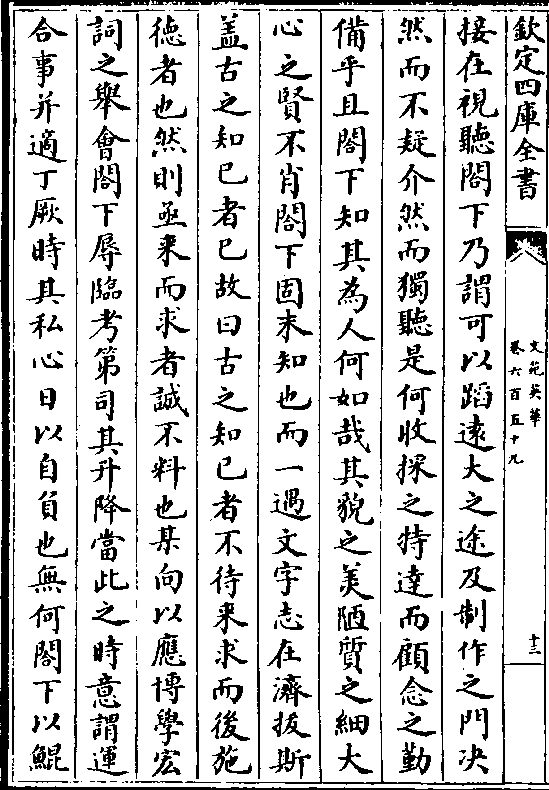 欽定四庫全書
文苑英華
卷六百五十九
十三
接在視聽閤下乃謂可以蹈遠大之途及制作之門决
然而不疑介然而獨聽是何收採之特達而顧念之勤
備乎且閤下知其為人何如哉其貌之美陋質之細大
心之賢不肖閤下固未知也而一遇文字志在濟拔斯
盖古之知已者已故曰古之知已者不待来求而後施
徳者也然則亟来而求者誠不料也某向以應博學宏
詞之舉會閤下辱臨考第司其升降當此之時意謂運
合事并適丁厥時其私心日以自負也無何閤下以鯤